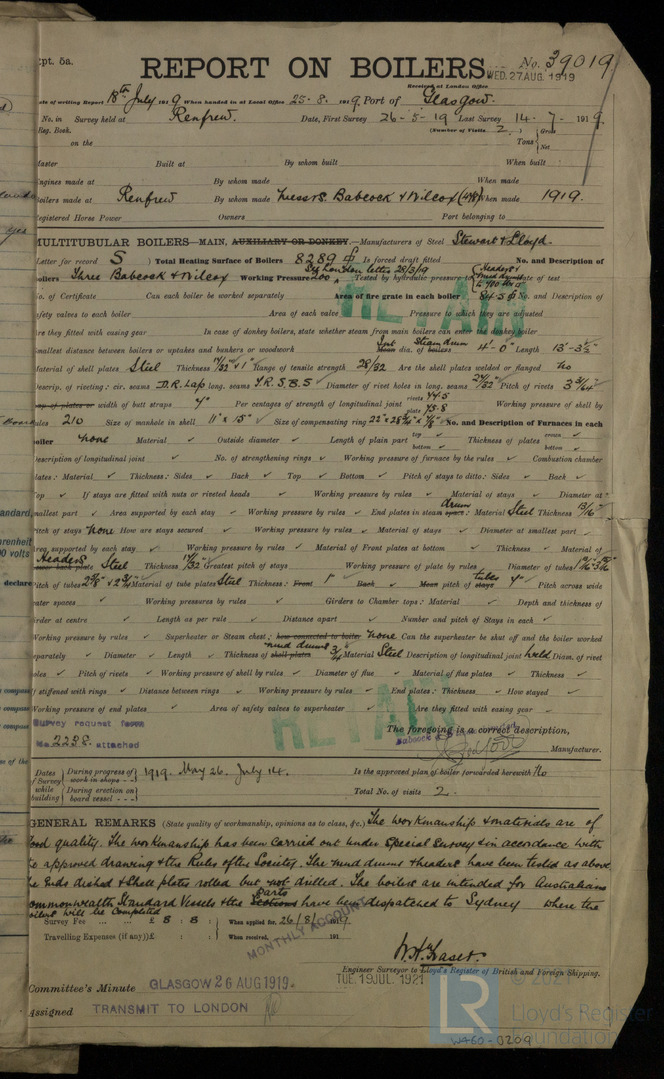 rpt. 5a.
REPORT ON BOILERS.
No. 39019
Received at London Office WED. 27 AUG. 1919
Date of writing Report 18th July 1919 When handed in at Local Office 25-8-1919 Port of Glasgow.
No. in Survey held at Renfrew. Date, First Survey 26-5-19 Last Survey 14-7-1919.
Reg. Book. (Number of Visits 2.)
on the Tons { Gross Net
Master Built at By whom built When built
Engines made at By whom made When made
Boilers made at Renfrew By whom made Messrs. Babcock & Wilcox When made 1919.
Registered Horse Power Owners Port belonging to
MULTITUBULAR BOILERS—MAIN, AUXILIARY OR DONKEY.—Manufacturers of Steel Stewart & Lloyd.
Letter for record S Total Heating Surface of Boilers 8289 Is forced draft fitted No. and Description of
Boilers Three Babcock & Wilcox Working Pressure 200 Tested by hydraulic pressure to Date of test
See London letter 28/3/19
No. of Certificate Can each boiler be worked separately Area of fire grate in each boiler 84.5 No. and Description of
safety valves to each boiler Area of each valve Pressure to which they are adjusted
Are they fitted with easing gear In case of donkey boilers, state whether steam from main boilers can enter the donkey boiler
Smallest distance between boilers or uptakes and bunkers or woodwork dia. of boilers Steam drum 4'-0" Length 13'-3½"
Material of shell plates Steel Thickness 17/32 & 1" Range of tensile strength 28/32 Are the shell plates welded or flanged No
Descrip. of riveting: cir. seams D.R. Lap long. seams T.R.D.B.S Diameter of rivet holes in long. seams 29/32" Pitch of rivets 3 3/64"
Lap of plates or width of butt straps 9" Per centages of strength of longitudinal joint rivets 44.5 plate 75.8 Working pressure of shell by
rules 210 Size of manhole in shell 11" x 15" Size of compensating ring No. and Description of Furnaces in each
boiler None Material Outside diameter Length of plain part top bottom Thickness of plates crown bottom
Description of longitudinal joint No. of strengthening rings Working pressure of furnace by the rules Combustion chamber
plates: Material Thickness: Sides Back Top Bottom Pitch of stays to ditto: Sides Back
Top If stays are fitted with nuts or riveted heads Working pressure by rules Material of stays Diameter at
smallest part Area supported by each stay Working pressure by rules End plates in steam drum space: Material Steel Thickness 13/16"
Pitch of stays None How are stays secured Working pressure by rules Material of stays Diameter at smallest part
Area supported by each stay Working pressure by rules Material of Front plates at bottom Thickness Material of
Headers Steel Thickness 17/32 Greatest pitch of stays Working pressure of plate by rules Diameter of tubes
Pitch of tubes Material of tube plates Steel Thickness: Front 1" Back Mean pitch of stays tubes 4" Pitch across wide
water spaces Working pressures by rules Girders to Chamber tops: Material Depth and thickness of
girder at centre Length as per rule Distance apart Number and pitch of Stays in each
Working pressure by rules Superheater or Steam chest; how connected to boiler None Can the superheater be shut off and the boiler worked
separately Diameter Length Thickness of shell plates mud drums 3/4 Material Steel Description of longitudinal joint Weld Diam. of rivet
holes Pitch of rivets Working pressure of shell by rules Diameter of flue Material of flue plates Thickness
If stiffened with rings Distance between rings Working pressure by rules End plates: Thickness How stayed
Working pressure of end plates Area of safety valves to superheater Are they fitted with easing gear
RETAIN
RETAIN
Survey request form
No. 2238. attached
The foregoing is a correct description,
Manufacturer.
Dates of Survey while building { During progress of work in shops - - 1919. May 26. July 14. Is the approved plan of boiler forwarded herewith No
During erection on board vessel - - - Total No. of visits 2.
GENERAL REMARKS (State quality of workmanship, opinions as to class, &c.) The workmanship & materials are of
good quality. The workmanship has been carried out under Special Survey & in accordance with
the approved drawing & the Rules of the Society. The mud drums & headers have been tested as above
the Ends dished & Shell plates rolled but not drilled. The boilers are intended for Australian
Commonwealth Standard Vessels & the Sections parts have been despatched to Sydney where the
boilers will be completed
Survey Fee ... £ 8 : 8 : When applied for, 26/8/1919
Travelling Expenses (if any) £ : : When received, 191
MONTHLY ACCOUNT
Engineer Surveyor to Lloyd's Register of British and Foreign Shipping.
Committee's Minute GLASGOW 26 AUG 1919. TUE. 19 JUL. 1921
Assigned TRANSMIT TO LONDON
© 2021
LR
Lloyd's Register
Foundation
W460-0209